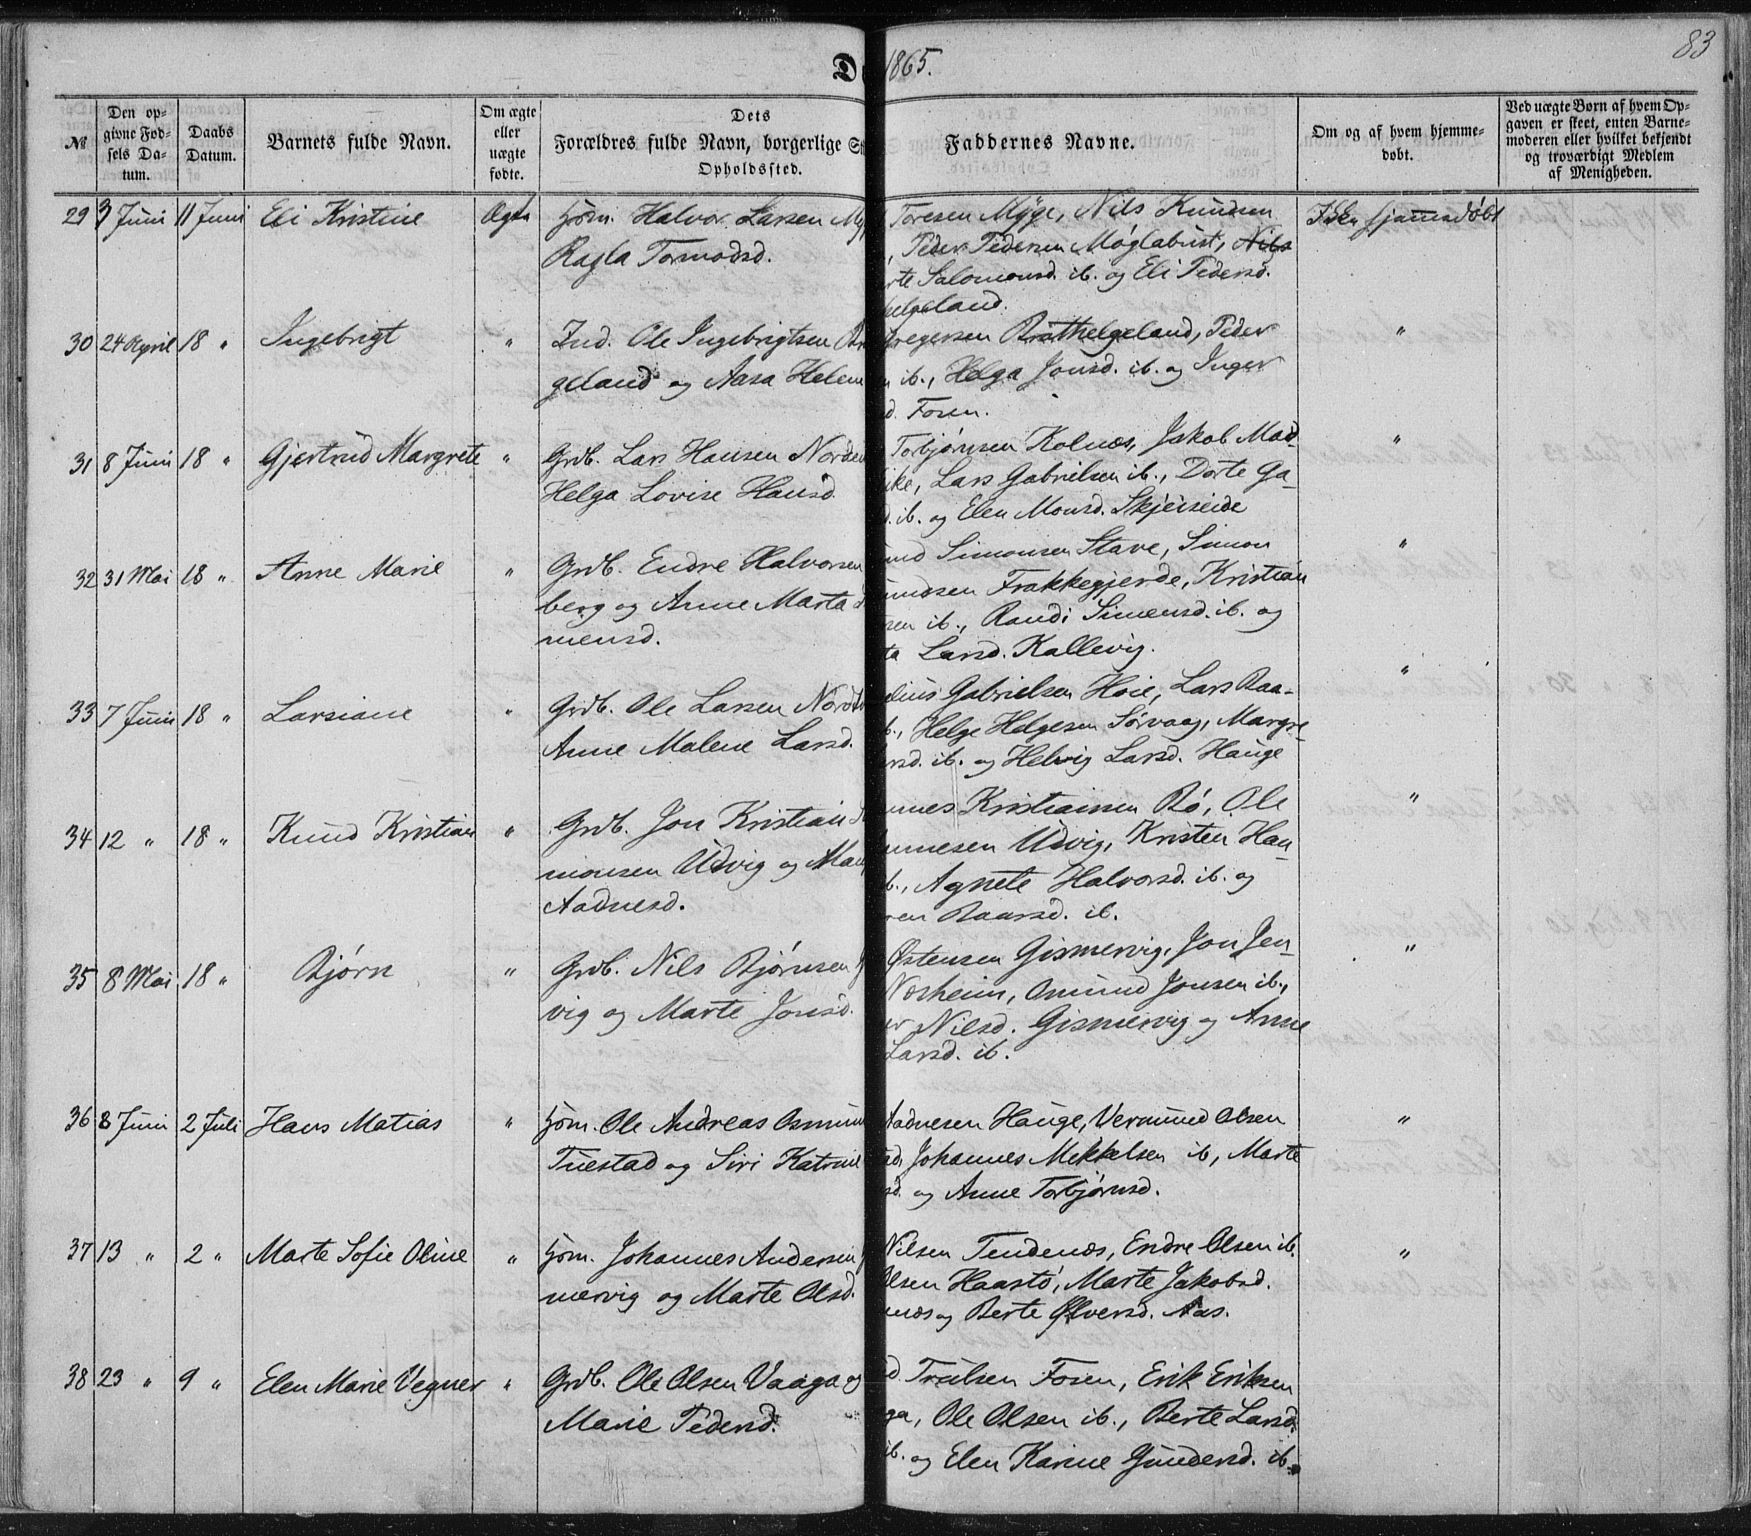 83
D
1865.
№
Den op-
givne Fød-
sels Da-
tum.
Daabs
Datum.
Barnets fulde Navn.
Om ægte
eller
uægte
fødte.
Dets
Forældres fulde Navn, borgerlige St
Opholdssted.
Faddernes Navne.
Om og af hvem hjemme-
døbt.
Ved uægte Børn af hvem Op-
gaven er skeet, enten Barne-
moderen eller hvilket bekjendt
og troværdigt Medlem
af Menigheden.
29 3 Juni 11 Juni Eli Kristine Ægte hjm. Halvor Larsen My
Ragla Tormodsd.
Toresen Myge, Nils Knudsen
, Peder Pedersen Møglabust, Nils
rte Salomonsd. ib. og Eli Pedersd.
helgeland.
Ikke hjemmedøbt
30 24 April 18 " Ingebrigt " Ind. Ole Ingebrigtsen Br
geland og Aasa Helene
regersen Bråthelgeland, Peder
n ib., Helga Jonsd. ib. og Inger
d. Fosen.
"
31 8 Juni 18 " Gjertrud Margrete " Grdb. Lars Hansen Norde
Helga Lovise Hansd.
Torbjørnsen Kolnæs, Jakob Mad-
ike, Lars Gabrielsen ib., Dorte Ga-
d. ib. og Elen Monsd. Skjeiseide
"
32 31 Mai 18 " Anne Marie " Grdb. Endre Halvorsen
berg og Anne Marta
mensd.
und Simonsen Stave, Simon
undsen Frakkegjerde, Kristian
sen ib., Randi Simensd. ib. og
ta Larsd. Kallevig.
"
33 7 Juni 18 " Larsiane " Grdb. Ole Larsen Nordt
Anne Malene Larsd.
elius Gabrielsen Høie, Lars Baa-
b., Helge Helgesen Sørvaag, Margre-
rsd. ib. og Helvig Larsd. Hauge
"
34 12 " 18 " Knud Kristian " Grdb. Jon Kristian
monsen Udvig og Mar
Aadnesd.
nnes Kristiansen Bø, Ole
nnesen Udvig, Kristen Han-
b., Agnete Halvorsd. ib. og
ren Baarsd. ib.
"
35 8 Mai 18 " Bjørn " Grdb. Nils Bjørnsen G
vig og Marte Jonsd.
Østensen Gismervig, Jon Jen-
Norheim, Osmund Jonsen ib.,
er Nilsd. Gismervig og Anne
Larsd. ib.
"
36 8 Juni 2 Juli Hans Matias " hjm. Ole Andreas Osmun
Tuestad og Siri Katrine
Aadnesen Hauge, Vermund Olsen
ad, Johannes Mekkelsen ib, Marte
sd. og Anne Torbjørnsd.
"
37 13 " 2 " Marte Sofie Oline " hjm. Johannes Andersen
mervig og Marte Olsd.
Nilsen Tendenæs, Endre Olsen ib.
Olsen Haastø, Marte Jakobsd.
næs og Berte Ølversd. Aas.
"
38 23 " 9 " Elen Marie Vegner " Grdb. Ole Olsen Vaaga og
Marie Pedersd.
d Trulsen Fosen, Erik Eriksen
ga, Ole Olsen ib., Berte Larsd.
ib. og Elen Karine Gundersd. ib.